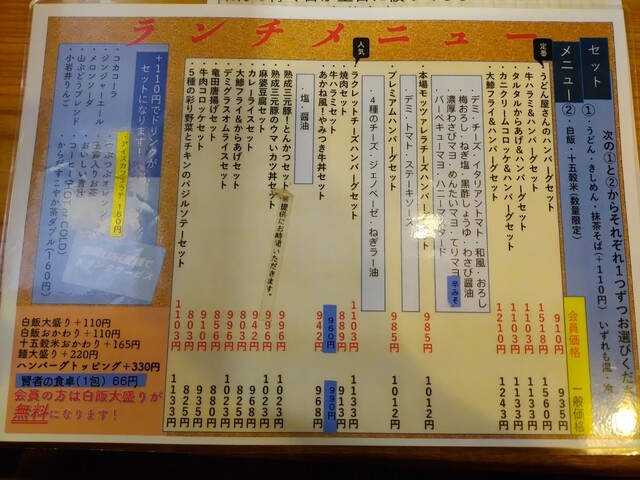 ランチメニュー
セットメニュー
次の①と②からそれぞれ1つずつお選びくだ
①・うどん・きしめん・抹茶そば(+110円) いずれも温・冷
②・白飯・十五穀米(数量限定)
会員価格
一般価格
定番
うどん屋さんのハンバーグセット 910円 935円
牛ハラミ&ハンバーグセット 1518円 1560円
タルタルからあげ&ハンバーグセット 1103円 1135円
カニクリームコロッケ&ハンバーグセット 1210円 1243円
大鯵フライ&ハンバーグセット
デミ・チーズ イタリアントマト・和風・おろし
梅おろし・ねぎ塩・黒酢しょうゆ・わさび醤油
濃厚わさびマヨ・めんたいマヨ・てりマヨ
バーベキューマヨ・ハニーマスタード
辛みそ
本場モッツァレラチーズハンバーグセット 985円 1012円
デミ・トマト・ステーキソース
プレミアムハンバーグセット 985円 1012円
4種のチーズ・ジェノベーゼ・ねぎラー油
人気
ラクレットチーズハンバーグセット 1103円 1133円
焼肉セット 889円 913円
牛ハラミセット 960円 990円
あわね風!やみつき牛丼セット 942円 968円
塩・醤油
熟成三元豚!とんかつセット 996円 1023円
熟成三元豚のウマいカツ丼セット 996円
※提供にお時間いただきます。
麻婆豆腐セット
カレーライスセット 942円 968円
大鯵フライ&からあげセット
デミグラスオムライスセット
竜田唐揚げセット
牛肉コロッケセット
5種の彩り野菜とチキンのバジルソテーセット 1103円 1133円
+110円でドリンクが
セットになります!
コカコーラ
ジンジャーエール
メロンソーダ
山ぶどうブレンド
小岩井りんご
・アイスカフェラテ 160円
・つぶつぶオレンジ
お茶
・おいしい青汁
・コーヒー(HOT or COLD)
からだすこやか茶ダブル(160円)
白飯大盛り+110円
白飯おかわり+110円
十五穀米おかわり+165円
麺大盛り+220円
ハンバーグトッピング+330円
賢者の食卓(1包) 66円
会員の方は白飯大盛りが
無料になります!